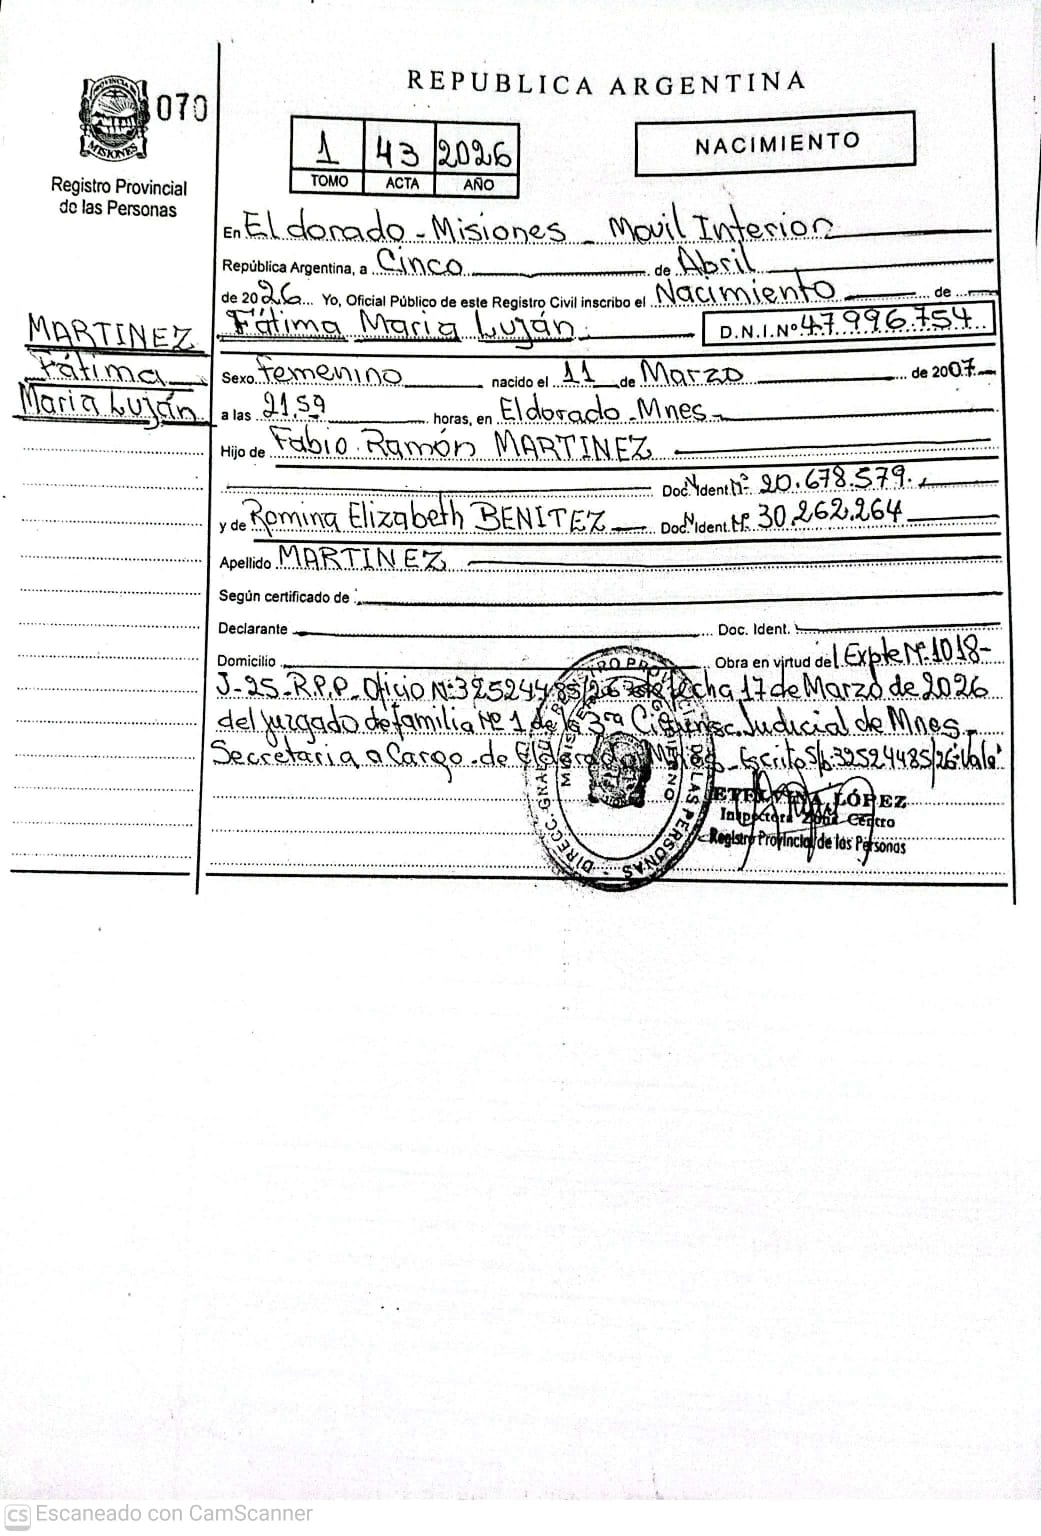 REPUBLICA ARGENTINA
070
PROVINCIA DE
MISIONES
Registro Provincial
de las Personas
1 43 2026
TOMO ACTA AÑO
NACIMIENTO
En Eldorado - Misiones - Movil Interior
República Argentina, a Cinco de Abril
de 2026 Yo, Oficial Público de este Registro Civil inscribo el Nacimiento de
Fátima Maria Luján D.N.I.Nº 47.996.754
MARTINEZ
Fátima
Maria Luján
Sexo Femenino nacido el 11 de Marzo de 2007
a las 21,59 horas, en Eldorado - Mnes -
Hijo de Fabio Ramón MARTINEZ
Doc. Ident. Nº 20.678.579.
y de Romina Elizabeth BENITEZ Doc. Ident. Nº 30.262.264
Apellido MARTINEZ
Según certificado de
Declarante Doc. Ident.
Domicilio Obra en virtud del Expte Nº 1018-
J-25-R.P.P- Oficio Nº 32524485/26 de fecha 17 de Marzo de 2026
del juzgado de familia Nº 1 de la 3ra Judicial de Mnes -
Secretaria a Cargo - de Eldorado Mnes - Escrito S/b: 32524485/26: Vale
ETELVINA LÓPEZ
Inspectora Zona Centro
Registro Provincial de las Personas
DIRECC. GRAL. DE REGISTRO PROVINCIAL DE LAS PERSONAS
CS Escaneado con CamScanner